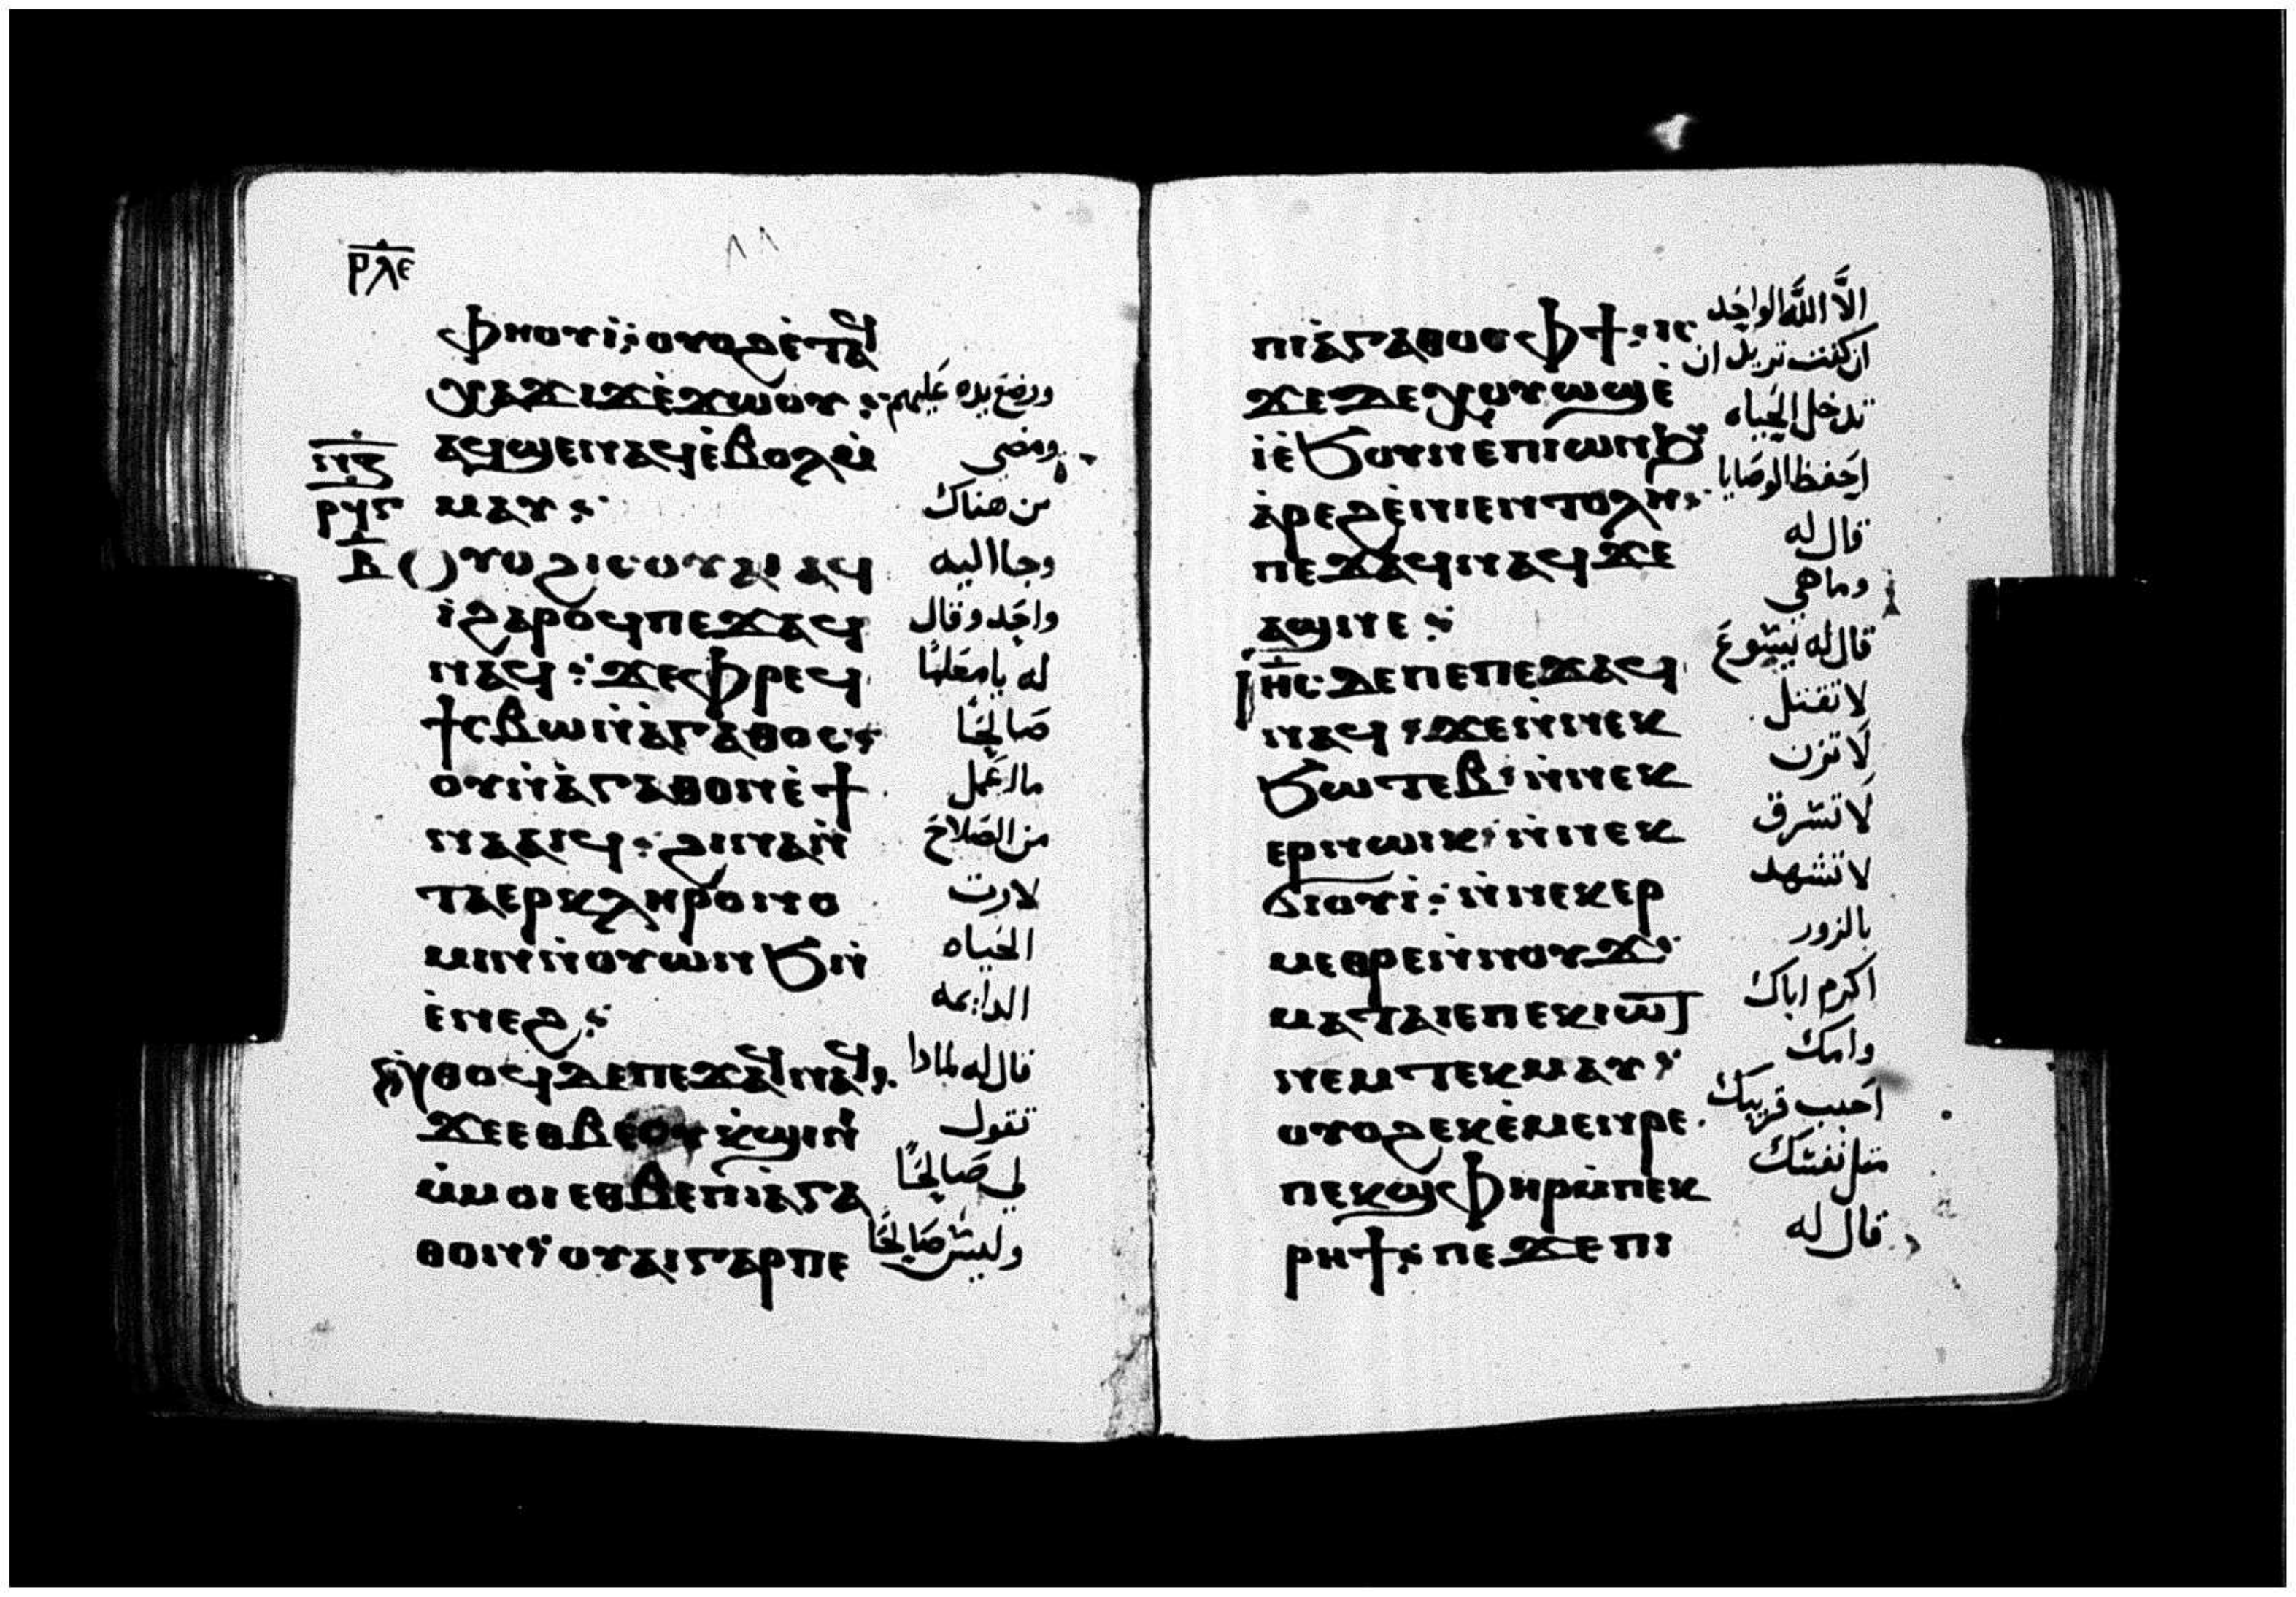 ⲣⲗⲉ
ⲫⲏⲟⲩⲓ̀: ⲟⲩⲟϩ ⲉ̀ⲧⲁϥ
ⲭⲁϫⲓϫ ⲉ̀ϫⲱⲟⲩ : ووضع يده عليهم
ⲁϥϣⲉⲛⲁϥ ⲉ̀ⲃⲟⲗ ⲙ̀ ومضى
ⲙⲁⲩ : من هناك
ⲣϥⲅ
ⲃ
ⲟⲩⲟϩ ⲓⲥ ⲟⲩⲁⲓ ⲁϥ وجا اليه
ⲓ̀ ϩⲁⲣⲟϥ ⲡⲉϫⲁϥ واحد وقال
ⲛⲁϥ : ϫⲉ ⲫⲣⲉϥ له يا معلمًا
ϯⲥⲃⲱ ⲛ̀ⲁ̀ⲅⲁⲑⲟⲥ : صالحًا
ⲟⲩ ⲛ̀ⲁ̀ⲅⲁⲑⲟⲛ ⲉ̀ϯ ما اعمل
ⲛⲁⲁⲓϥ : ϩⲓⲛⲁ ⲛ̀ من الصلاح
ⲧⲁⲉⲣⲕⲗⲏⲣⲟⲛⲟ لارث
ⲙⲓⲛ ⲛ̀ⲟⲩⲱⲛϧ ⲛ̀ الحياه
ⲉ̀ⲛⲉϩ : الدايمه
ⲛ̀ⲑⲟϥ ⲇⲉ ⲡⲉϫⲁϥ ⲛⲁϥ : قال له لماذا
ϫⲉ ⲉⲑⲃⲉⲟⲩ ⲕ̀ϣⲓⲛⲓ تقول
ⲙ̀ⲙⲟⲓ ⲉⲑⲃⲉ ⲡⲓⲁ̀ⲅⲁ لي صالحًا
ⲑⲟⲛ : ⲟⲩⲁⲓ ⲅⲁⲣ ⲡⲉ وليس صالحًا
ⲡⲓⲁ̀ⲅⲁⲑⲟⲥ ⲫϯ : ⲓⲥ الّا اللّه الواحد
ϫⲉ ⲇⲉ ⲭⲟⲩⲱϣ ⲉ̀ ان كنت تريد ان
ⲓ̀ ⲉ̀ϧⲟⲩⲛ ⲉ̀ⲡⲓⲱⲛϧ تدخل الحياه
ⲁ̀ⲣⲉϩ ⲉ̀ⲛⲓⲉⲛⲧⲟⲗⲏ : احفظ الوصايا
ⲡⲉϫⲁϥ ⲛⲁϥ ϫⲉ قال له
ⲁϣ ⲛⲉ : وما هي
ⲓⲏⲥ ⲇⲉ ⲡⲉ ⲡⲉϫⲁϥ قال له يسوع
ⲛⲁϥ : ϫⲉ ⲛ̀ⲛⲉⲕ لا تقتل
ϧⲱⲧⲉⲃ : ⲛ̀ⲛⲉⲕ لا تزن
ⲉⲣⲛⲱⲓⲕ : ⲛ̀ⲛⲉⲕ لا تسرق
ϭⲓⲟⲩⲓ̀ : ⲛ̀ⲛⲉⲕⲉⲣ لا تشهد
ⲙⲉⲑⲣⲉ ⲛ̀ⲛⲟⲩϫ : بالزور
ⲙⲁⲧⲁⲓⲉ ⲡⲉⲕⲓⲱⲧ اكرم اباك
ⲛⲉⲙ ⲧⲉⲕⲙⲁⲩ : وامك
ⲟⲩⲟϩ ⲉⲕⲉ̀ⲙⲉⲛⲣⲉ احبب قريبك
ⲡⲉⲕϣⲫⲏⲣ ⲙ̀ⲡⲉⲕ مثل نفسك
ⲣⲏϯ : ⲡⲉϫⲉ ⲡⲓ قال له